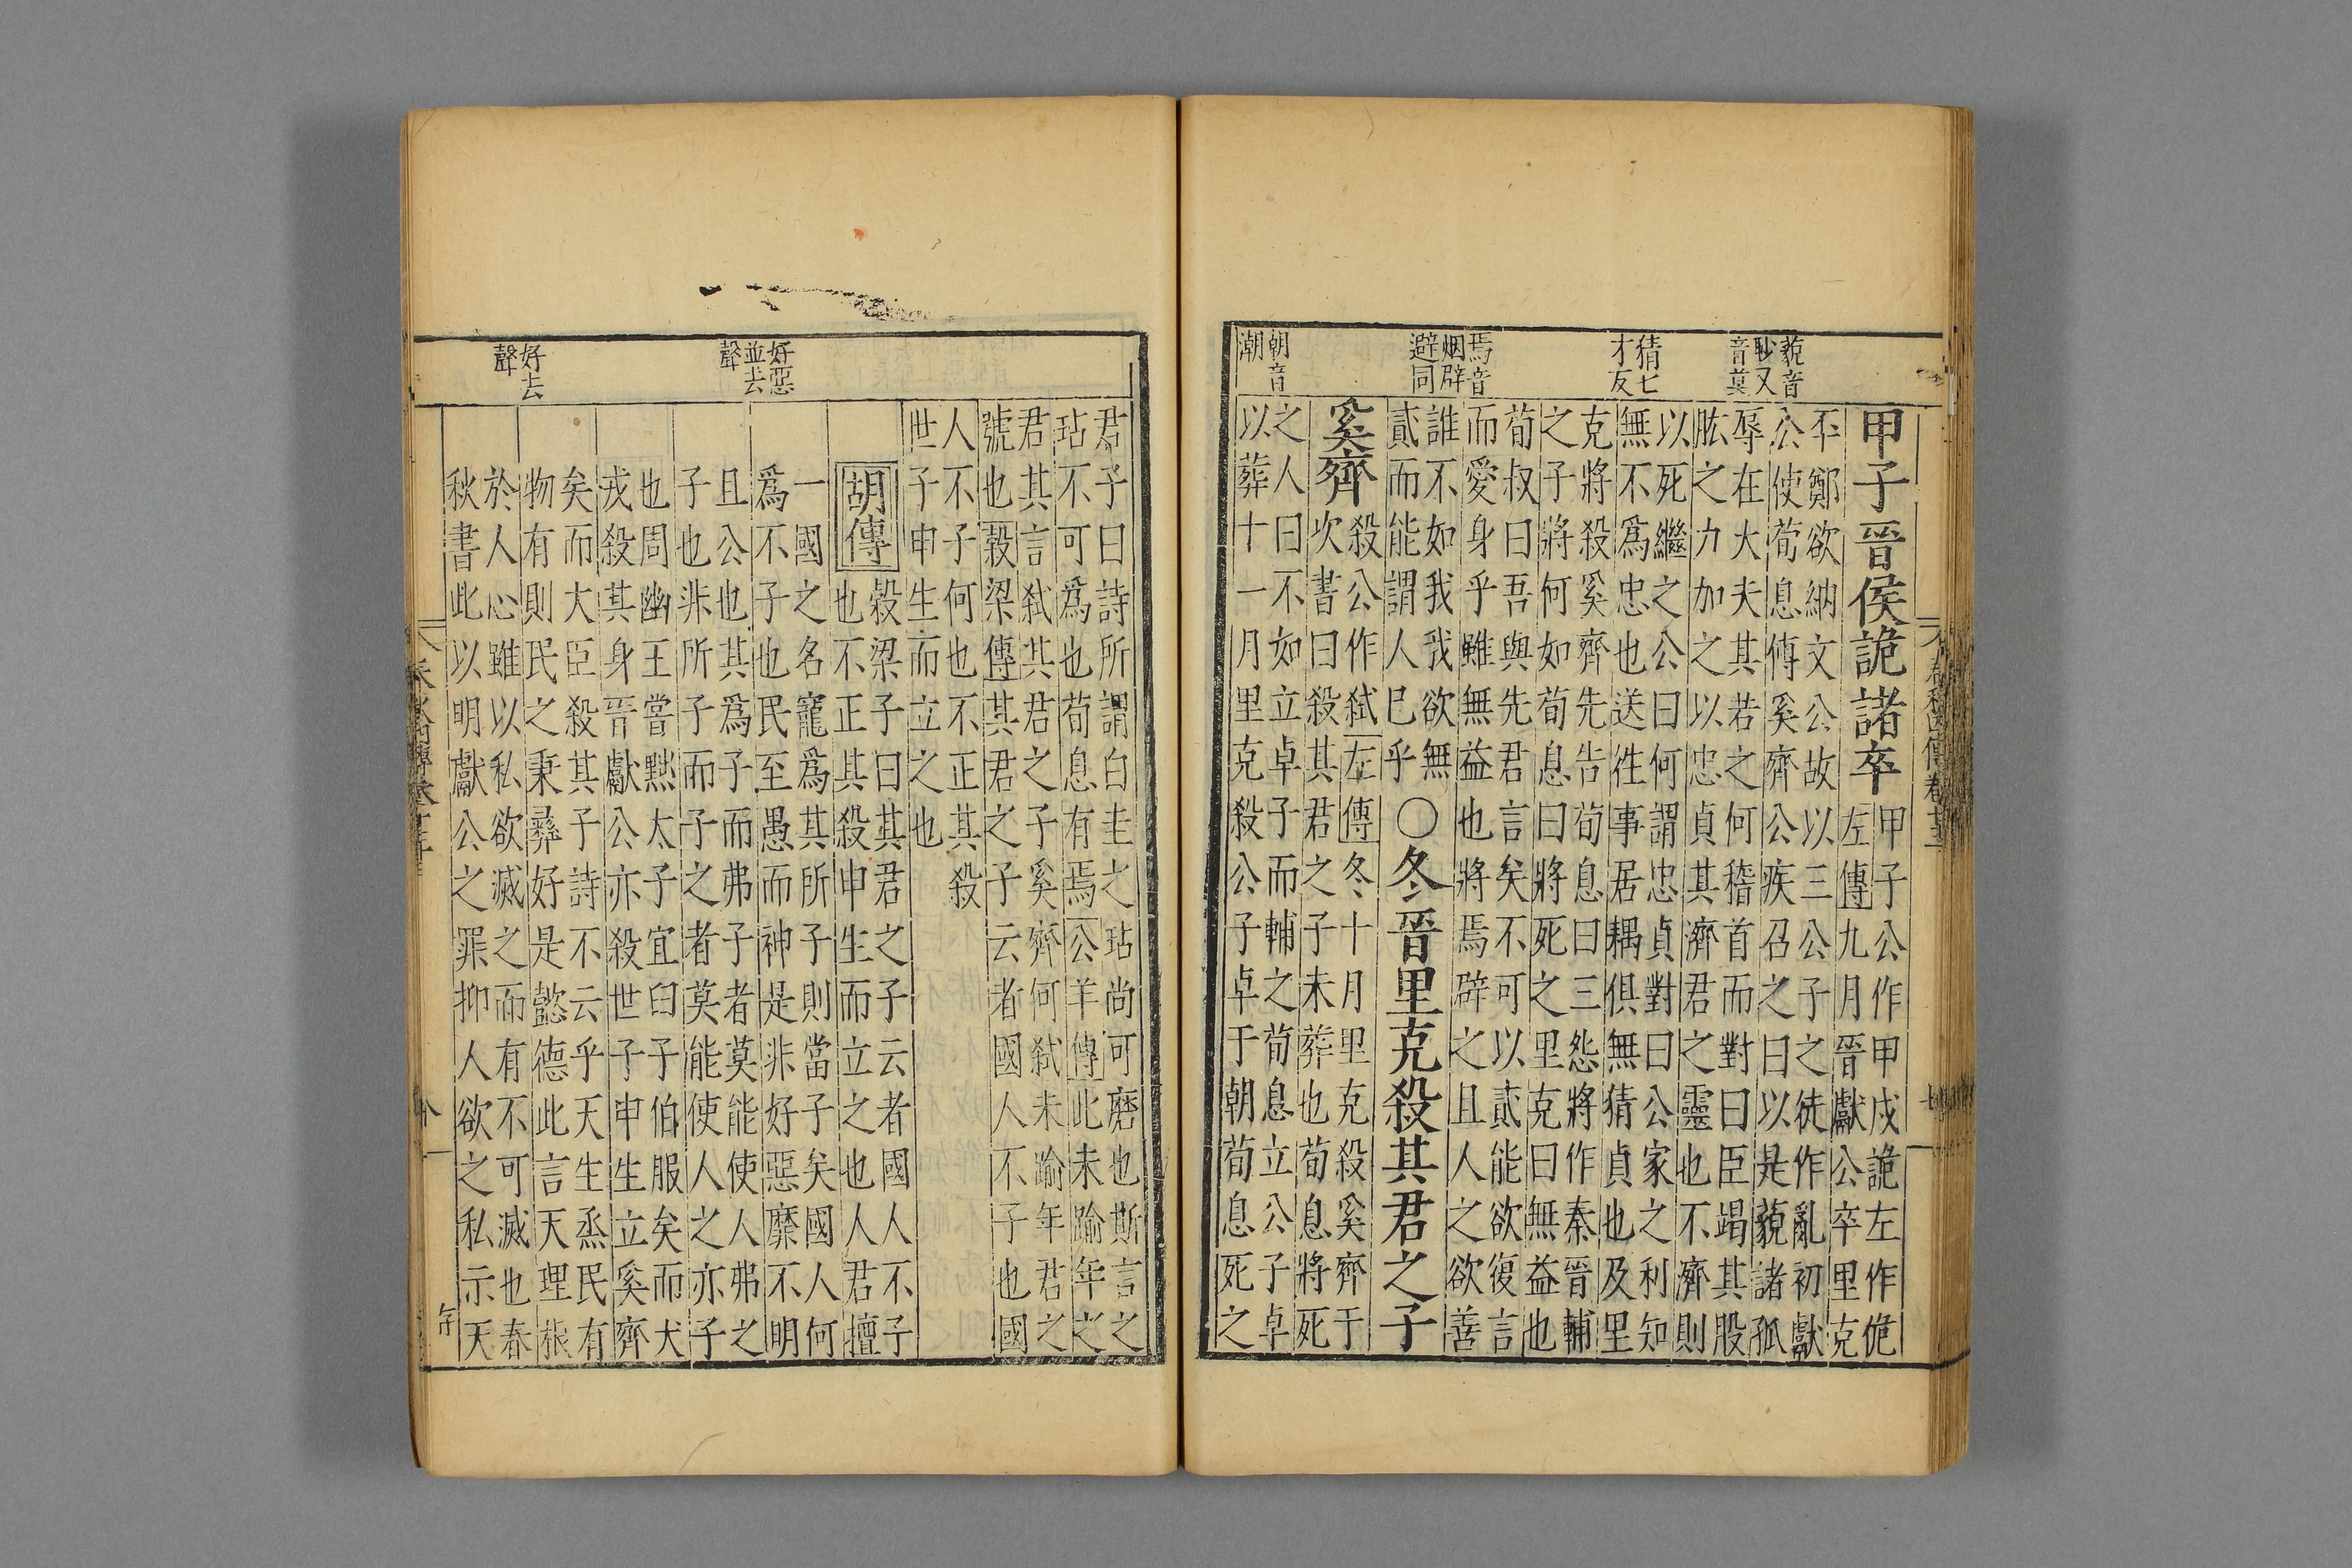 藐音
眇又
音莫
猜七
才反
焉音
烟辟
避同
朝音
潮
甲子晉侯詭諸卒
甲子公作甲戌詭左作佹
左傳九月晉獻公卒里克
丕鄭欲納文公故以三公子之徒作亂初獻
公使荀息傅奚齊公疾召之曰以是藐諸孤
辱在大夫其若之何稽首而對曰臣竭其股
肱之力加之以忠貞其濟君之靈也不濟則
以死繼之公曰何謂忠貞對曰公家之利知
無不爲忠也送徃事居耦俱無猜貞也及里
克將殺奚齊先告荀息曰三怨將作秦晉輔
之子將何如荀息曰將死之里克曰無益也
荀叔曰吾與先君言矣不可以貳能欲復言
而愛身乎雖無益也將焉辟之且人之欲善
誰不如我我欲無
貳而能謂人巳乎
○冬晉里克殺其君之子
奚齊
殺公作弑左傳冬十月里克殺奚齊于
坎書曰殺其君之子未葬也荀息將死
之人曰不如立卓子而輔之荀息立公子卓
以葬十一月里克殺公子卓于朝荀息死之
好惡
並去
聲
好去
聲
君子曰詩所謂白圭之玷尚可磨也斯言之
玷不可爲也荀息有焉公羊傳此未踰年之
君其言弑其君之子奚齊何弑未踰年君之
號也穀梁傳其君之子云者國人不子也國
人不子何也不正其殺
世子申生而立之也
胡傳
穀梁子曰其君之子云者國人不子
也不正其殺申生而立之也人君擅
一國之名寵爲其所子則當子矣國人何
爲不子也民至愚而神是非好惡靡不明
且公也其爲子而弗子者莫能使人弗之
子也非所子而子之者莫能使人之亦子
也周幽王嘗黜太子宜臼子伯服矣而犬
戎殺其身晉獻公亦殺世子申生立奚齊
矣而大臣殺其子詩不云乎天生烝民有
物有則民之秉彝好是懿德此言天理根
於人心雖以私欲滅之而有不可滅也春
秋書此以明獻公之罪抑人欲之私示天